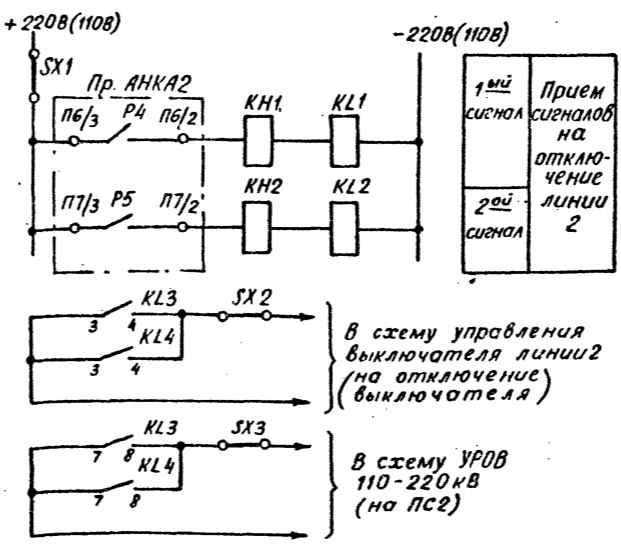 +220В(110В)
-220В(110В)
SX1
Пр. АНКА2
П6/3 Р4 П6/2
КН1 KL1
П7/3 Р5 П7/2
КН2 KL2
1ый
сигнал
2ой
сигнал
Прием
сигналов
на
отклю-
чение
линии
2
KL3
3 4
SX2
KL4
3 4
В схему управления
выключателя линии2
(на отключение
выключателя)
KL3
7 8
SX3
KL4
7 8
В схему УРОВ
110-220кВ
(на ПС2)